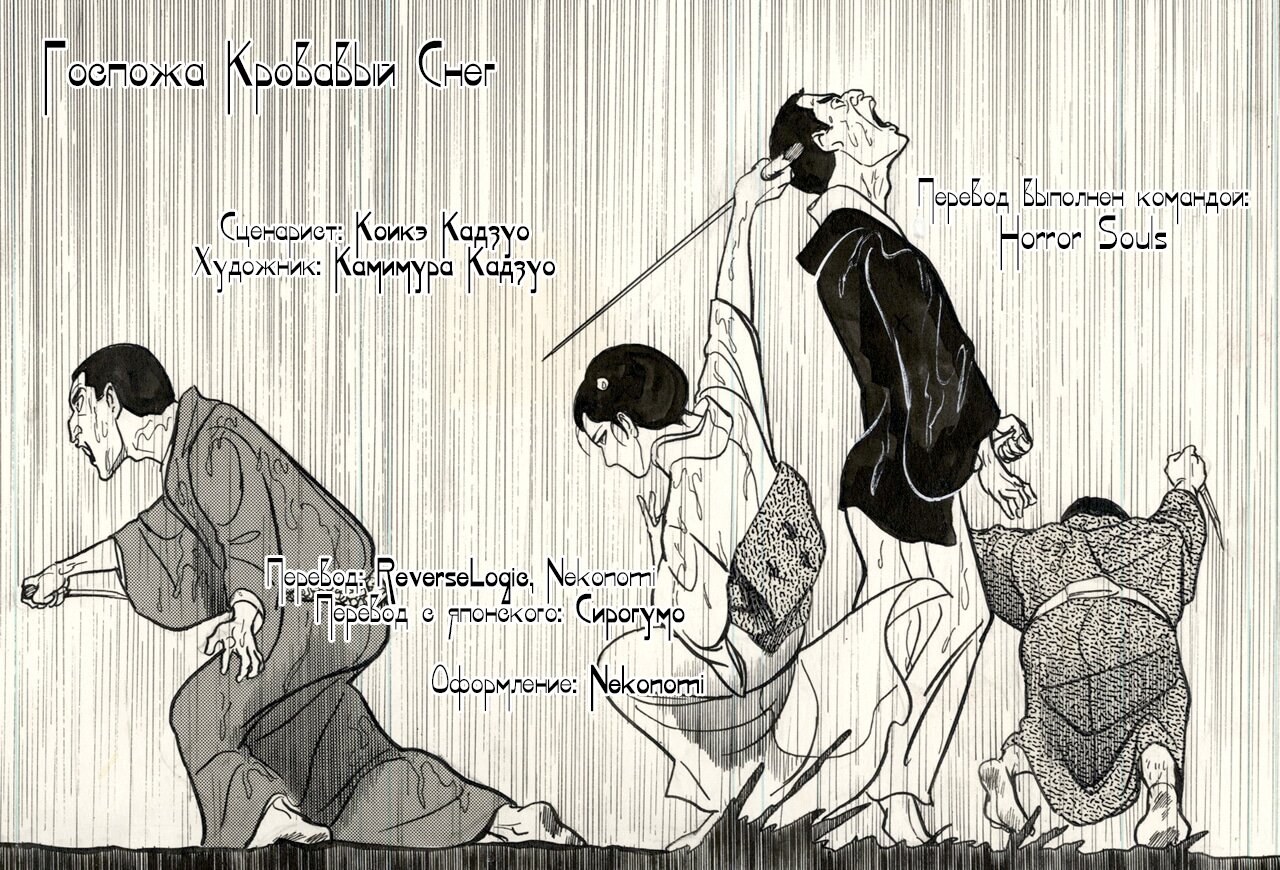 Госпожа Кровавый Снег
Перевод выполнен командой:
Horror Souls
Сценарист: Коикэ Кадзуо
Художник: Камимура Кадзуо
Перевод: ReverseLogic, Nekonomi
Перевод с японского: Сирогумо
Оформление: Nekonomi